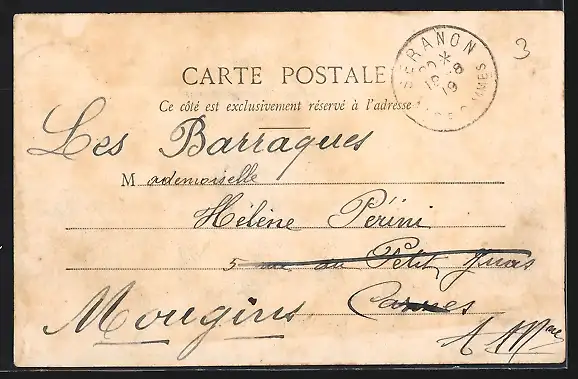 3
SERANON
CARTE POSTALE
Ce côté est exclusivement réservé à l'adresse
Les Barraques
Mademoiselle
Hélène Périni
5 rue du Petit Juas
Mougins Cannes
A Mmes